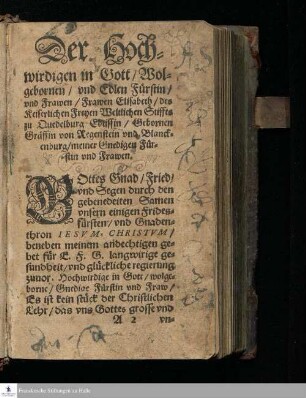 Der Hoch-
wirdigen in Gott/ Wol-
gebornen/ und Edlen Fürstin/
vnd Frawen/ Frawen Elisabeth/ des
Keiserlichen Freyen Weltlichen Stiffts
zu Quedelburg Ebtissin/ Gebornen
Gräffin von Regenstein vnd Blanck-
enburg/ meiner Gnedigen Für-
stin vnd Frawen.
GOttes Gnad/ Fried/
vnd Segen durch den
gebenedeiten Samen
vnsern einigen Frides-
fürsten/ vnd Gnaden-
thron IESVM CHRISTVM/
beneben meinem andechtigen ge-
bet für E. F. G. langwirige ge-
sundheit/ vnd glückliche regierung
zuuor. Hochwirdige in Gott/ wolge-
borne/ Gnedige Fürstin vnd Fraw/
Es ist kein stück der Christlichen
Lehr/ das vns Gottes grosse vnd
A 2 vn-
Franckesche Stiftungen zu Halle